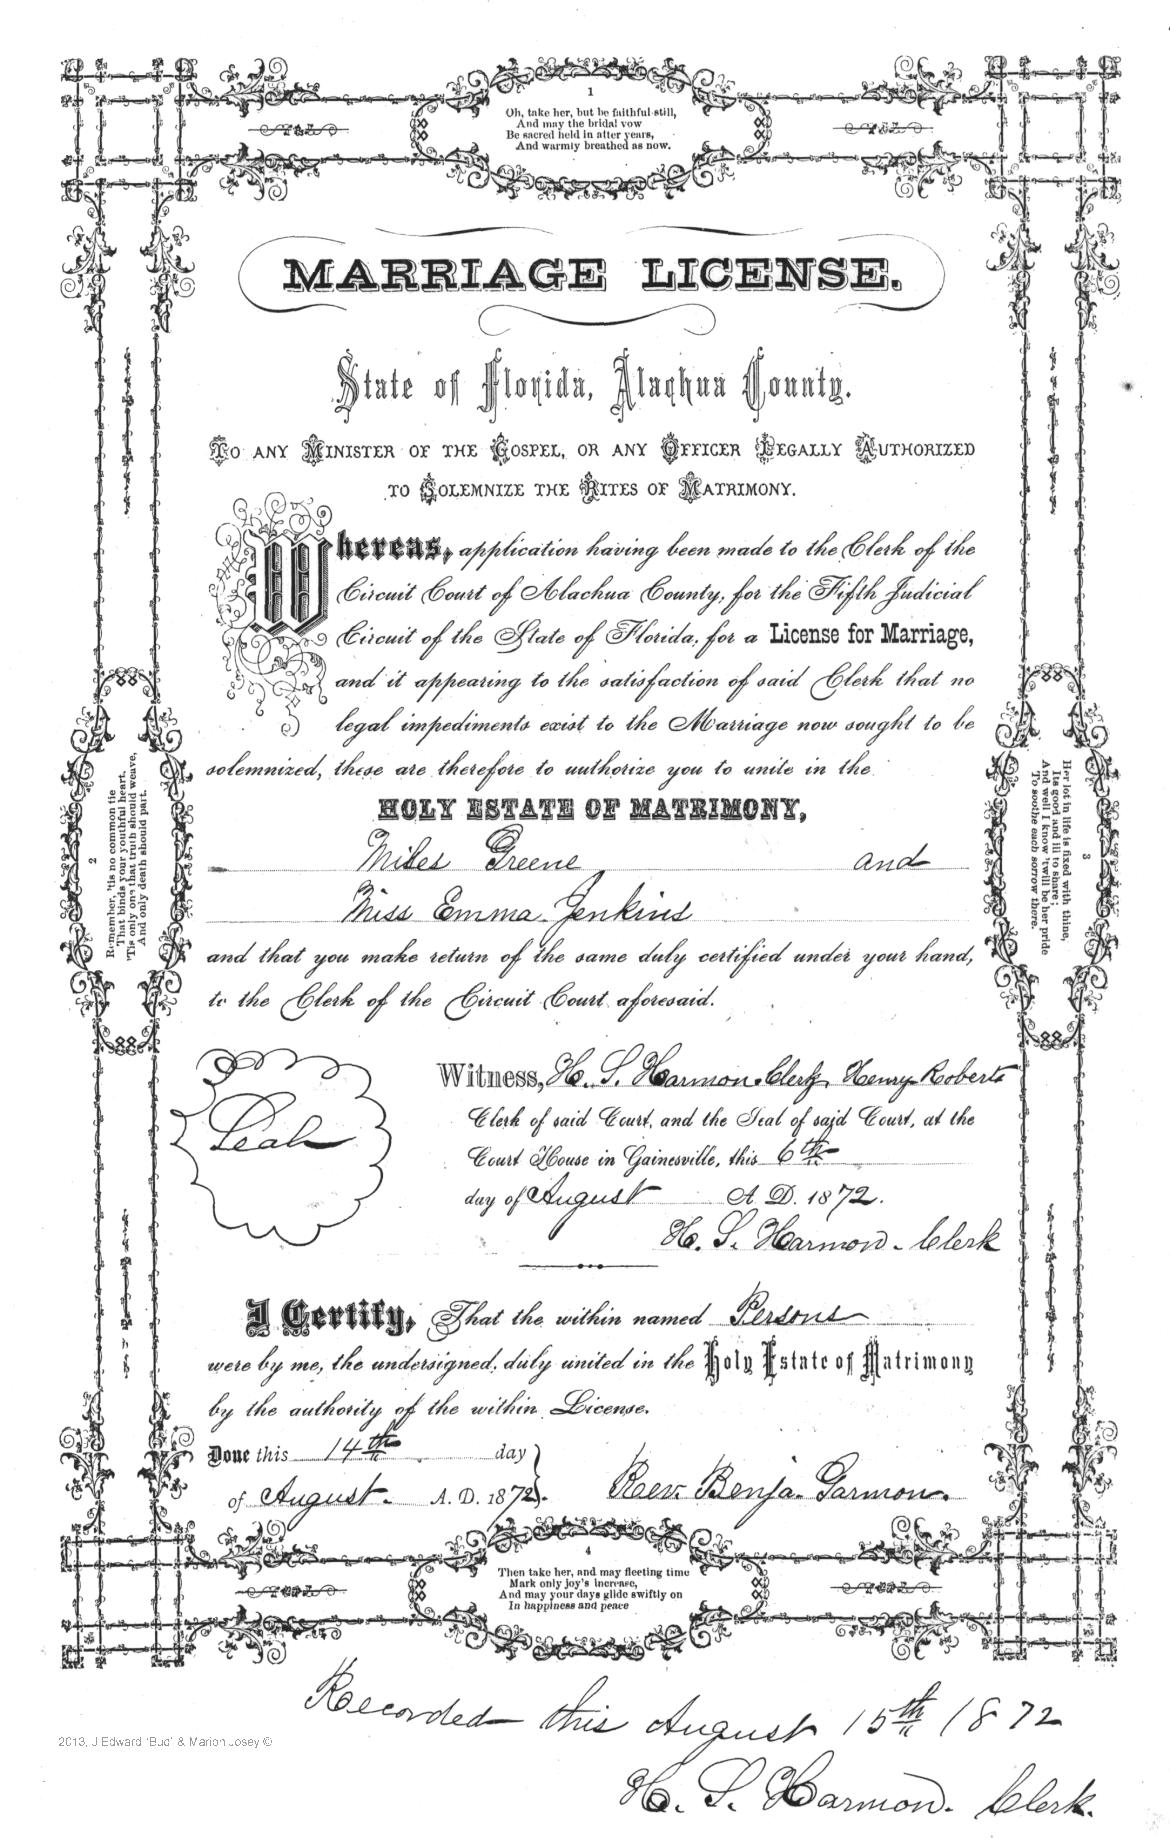 1
Oh, take her, but be faithful still,
And may the bridal vow
Be sacred held in after years,
And warmly breathed as now.
MARRIAGE LICENSE.
State of Florida, Alachua County.
TO ANY MINISTER OF THE GOSPEL, OR ANY OFFICER LEGALLY AUTHORIZED
TO SOLEMNIZE THE RITES OF MATRIMONY.
Whereas, application having been made to the Clerk of the
Circuit Court of Alachua County, for the Fifth Judicial
Circuit of the State of Florida, for a License for Marriage,
and it appearing to the satisfaction of said Clerk that no
legal impediments exist to the Marriage now sought to be
solemnized, these are therefore to authorize you to unite in the
HOLY ESTATE OF MATRIMONY,
Miles Greene and
Miss Emma Jenkins
and that you make return of the same duly certified under your hand,
to the Clerk of the Circuit Court aforesaid.
2
Remember, 'tis no common tie
That binds your youthful heart,
'Tis only one that truth should weave,
And only death should part.
3
Her lot in life is fixed with thine,
Its good and ill to share;
And well I know 'twill be her pride
To soothe each sorrow there.
Seal
Witness, H. S. Harmon Clerk Henry Roberts
Clerk of said Court, and the Seal of said Court, at the
Court House in Gainesville, this 6th
day of August A. D. 1872.
H. S. Harmon. Clerk
I Certify, That the within named Persons
were by me, the undersigned, duly united in the Holy Estate of Matrimony
by the authority of the within License.
Done this 14th day
of August. A. D. 1872.
Rev. Benja. Garmon.
4
Then take her, and may fleeting time
Mark only joy's increase,
And may your days glide swiftly on
In happiness and peace
Recorded this August 15th 1872
H. S. Harmon. Clerk.
2013, J Edward 'Bud' & Marion Josey ©